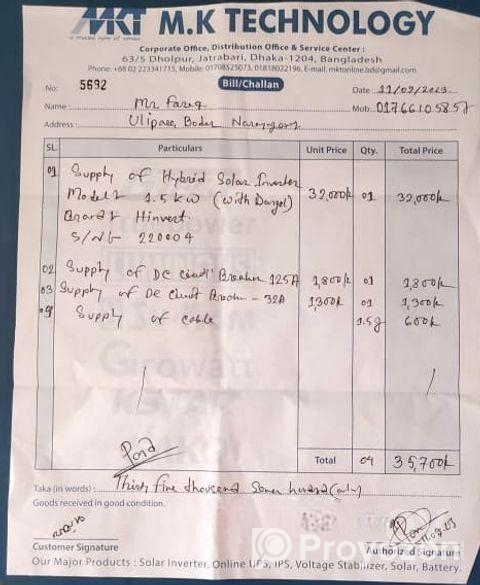 MKT M.K TECHNOLOGY
A trusted name of service
Corporate Office, Distribution Office & Service Center :
63/5 Dholpur, Jatrabari, Dhaka-1204, Bangladesh
Phone: +88 02 223341715, Mobile: 01708525073, 01818022196, E-mail: mktonline.bd@gmail.com
No: 5692 Bill/Challan Date : 11/09/2023
Name : Mr Fareq Mob:
Address : Boder
SL. Particulars Unit Price Qty. Total Price
01 Supply of Hybrid Solar Inverter
Model: 1.5 kW (with) 32,000/- 01 32,000/-
Brand: Hinvert
S/N: 220004
02 Supply of DC Breaker 125A 1,800/- 01 1,800/-
03 Supply of DC - 32A 1,300/- 01 1,300/-
04 Supply of cable 1.5g 600/-
Growatt
Paid
Total 04 35,700/-
Taka (in words) : Thirty Five thousand hundred only
Goods received in good condition.
Customer Signature
Authorized Signature
Our Major Products : Solar Inverter, Online UPS, IPS, Voltage Stabilizer, Solar, Battery.